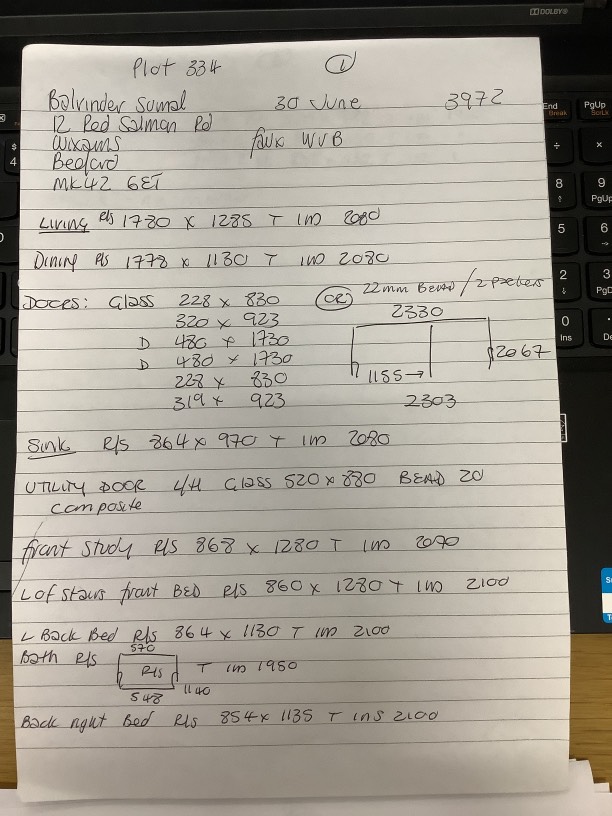 Plot 334 1
Balvinder Sumal 30 June 3972
12 Red Salmon Rd
Wixams faux WVB
Bedford
MK42 6ET
Living R/S 1780 x 1285 T 1m 2080
Dining R/S 1778 x 1130 T 1m 2080
Doors: Glass 228 x 830 OR 22mm Bead / 2 packers
320 x 923 2330
D 480 x 1730
D 480 x 1730 2067
228 x 830 1155→
319 x 923 2303
Sink R/S 864 x 970 T 1m 2080
UTILITY DOOR L/H Glass 520 x 880 BEAD 20
Composite
front study R/S 868 x 1280 T 1m 2090
L of stairs front BED R/S 860 x 1280 T 1m 2100
L Back Bed R/S 864 x 1130 T 1m 2100
Bath R/S 570 R/S T 1m 1950
548 1140
Back right Bed R/S 854 x 1135 T ins 2100
DOLBY
End
Break
PgUp
ScrLk
$
4
÷
×
8
9
PgUp
5
6
2
3
PgD
0
Ins